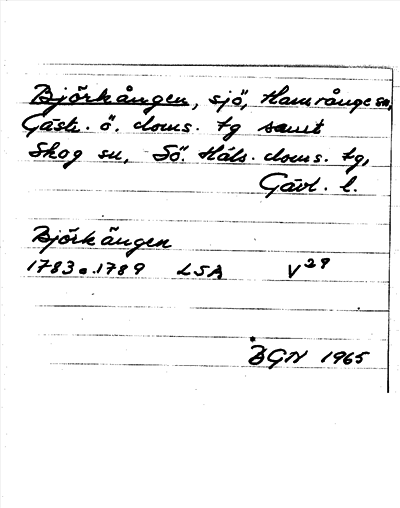 Björkången, sjö, Hamrånge sn,
Gästr. ö. doms. tg samt
Skog sn, Sö. Häls. doms. tg,
Gävl. l.
Björkången
1783 o. 1789 LSA V29
BGN 1965